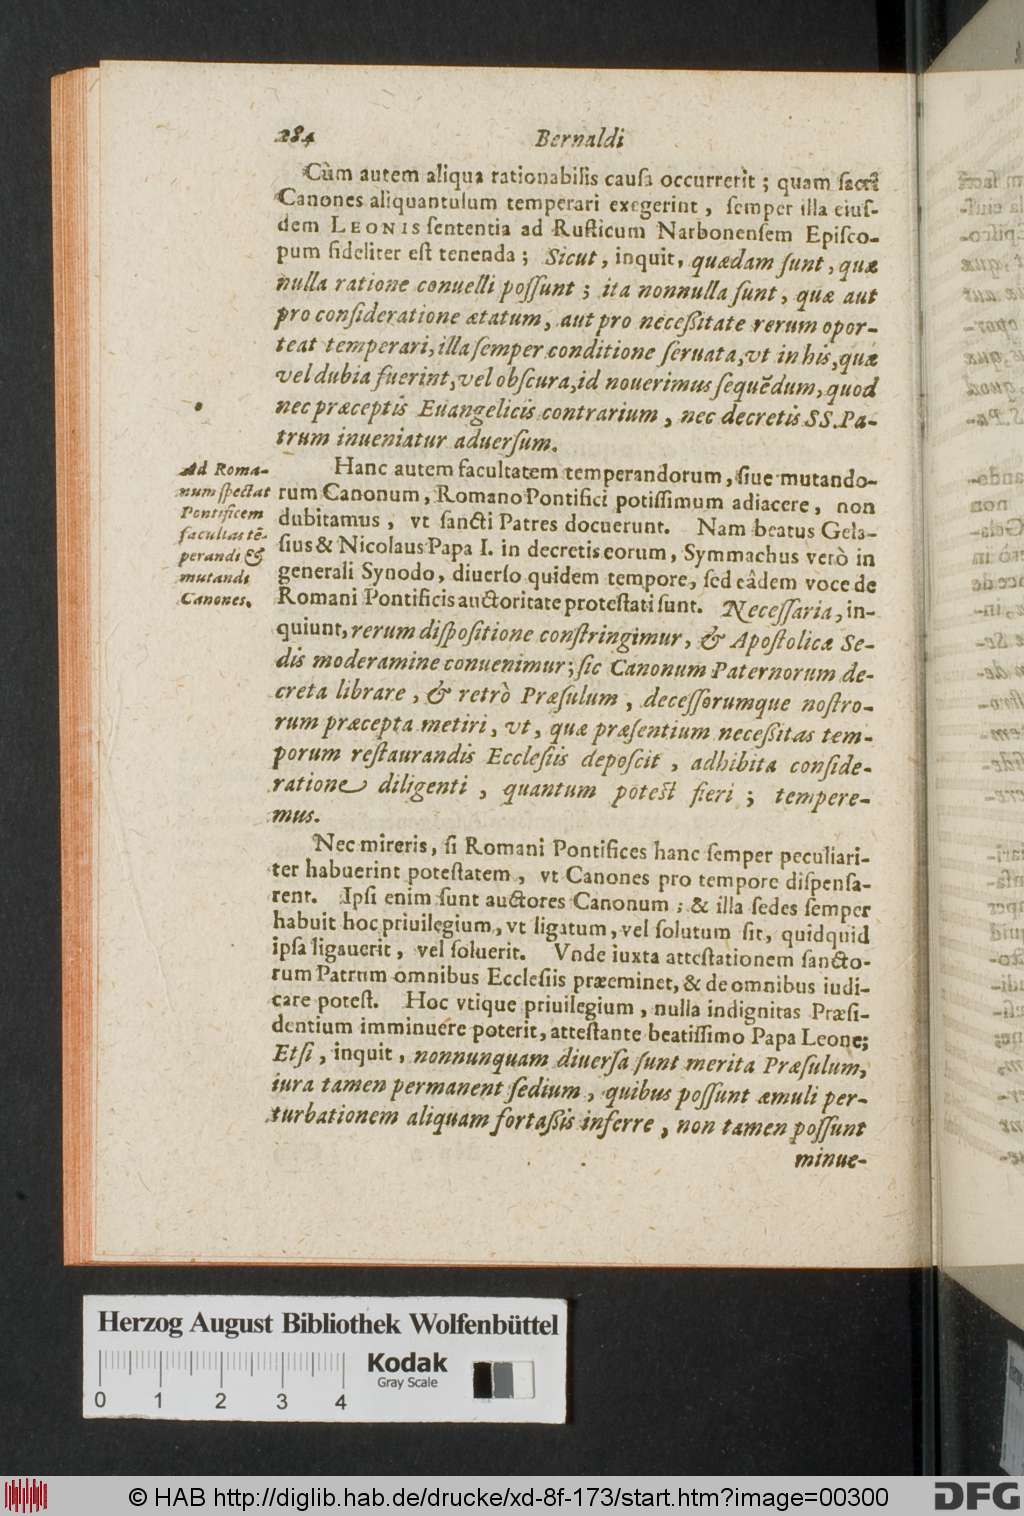 284 Bernaldi
Cùm autem aliqua rationabilis causa occurrerit; quam sacri
Canones aliquantulum temperari exegerint, semper illa eius-
dem LEONIS sententia ad Rusticum Narbonensem Episco-
pum fideliter est tenenda; Sicut, inquit, quædam sunt, quæ
nulla ratione conuelli possunt; ita nonnulla sunt, quæ aut
pro consideratione ætatum, aut pro necessitate rerum opor-
teat temperari, illa semper conditione seruata, vt in his, quæ
vel dubia fuerint, vel obscura, id nouerimus sequẽdum, quod
nec præceptis Euangelicis contrarium, nec decretis SS. Pa-
trum inueniatur aduersum.
Ad Roma-
num spectat
Pontificem
facultas tẽ-
perandi &
mutandi
Canones.
Hanc autem facultatem temperandorum, siue mutando-
rum Canonum, Romano Pontifici potissimum adiacere, non
dubitamus, vt sancti Patres docuerunt. Nam beatus Gela-
sius & Nicolaus Papa I. in decretis eorum, Symmachus verò in
generali Synodo, diuerso quidem tempore, sed eâdem voce de
Romani Pontificis auctoritate protestati sunt. Necessaria, in-
quiunt, rerum dispositione constringimur, & Apostolicæ Se-
dis moderamine conuenimur; sic Canonum Paternorum de-
creta librare, & retrò Præsulum, decessorumque nostro-
rum præcepta metiri, vt, quæ præsentium necessitas tem-
porum restaurandis Ecclesiis deposcit, adhibita conside-
ratione diligenti, quantum potest fieri; tempere-
mus.
Nec mireris, si Romani Pontifices hanc semper peculiari-
ter habuerint potestatem, vt Canones pro tempore dispensa-
rent. Ipsi enim sunt auctores Canonum; & illa sedes semper
habuit hoc priuilegium, vt ligatum, vel solutum sit, quidquid
ipsa ligauerit, vel soluerit. Vnde iuxta attestationem sancto-
rum Patrum omnibus Ecclesiis præeminet, & de omnibus iudi-
care potest. Hoc vtique priuilegium, nulla indignitas Præsi-
dentium imminuere poterit, attestante beatissimo Papa Leone;
Etsi, inquit, nonnunquam diuersa sunt merita Præsulum,
iura tamen permanent sedium, quibus possunt æmuli per-
turbationem aliquam fortassis inferre, non tamen possunt
minue-
Herzog August Bibliothek Wolfenbüttel
Kodak
Gray Scale
0 1 2 3 4
© HAB http://diglib.hab.de/drucke/xd-8f-173/start.htm?image=00300
DFG